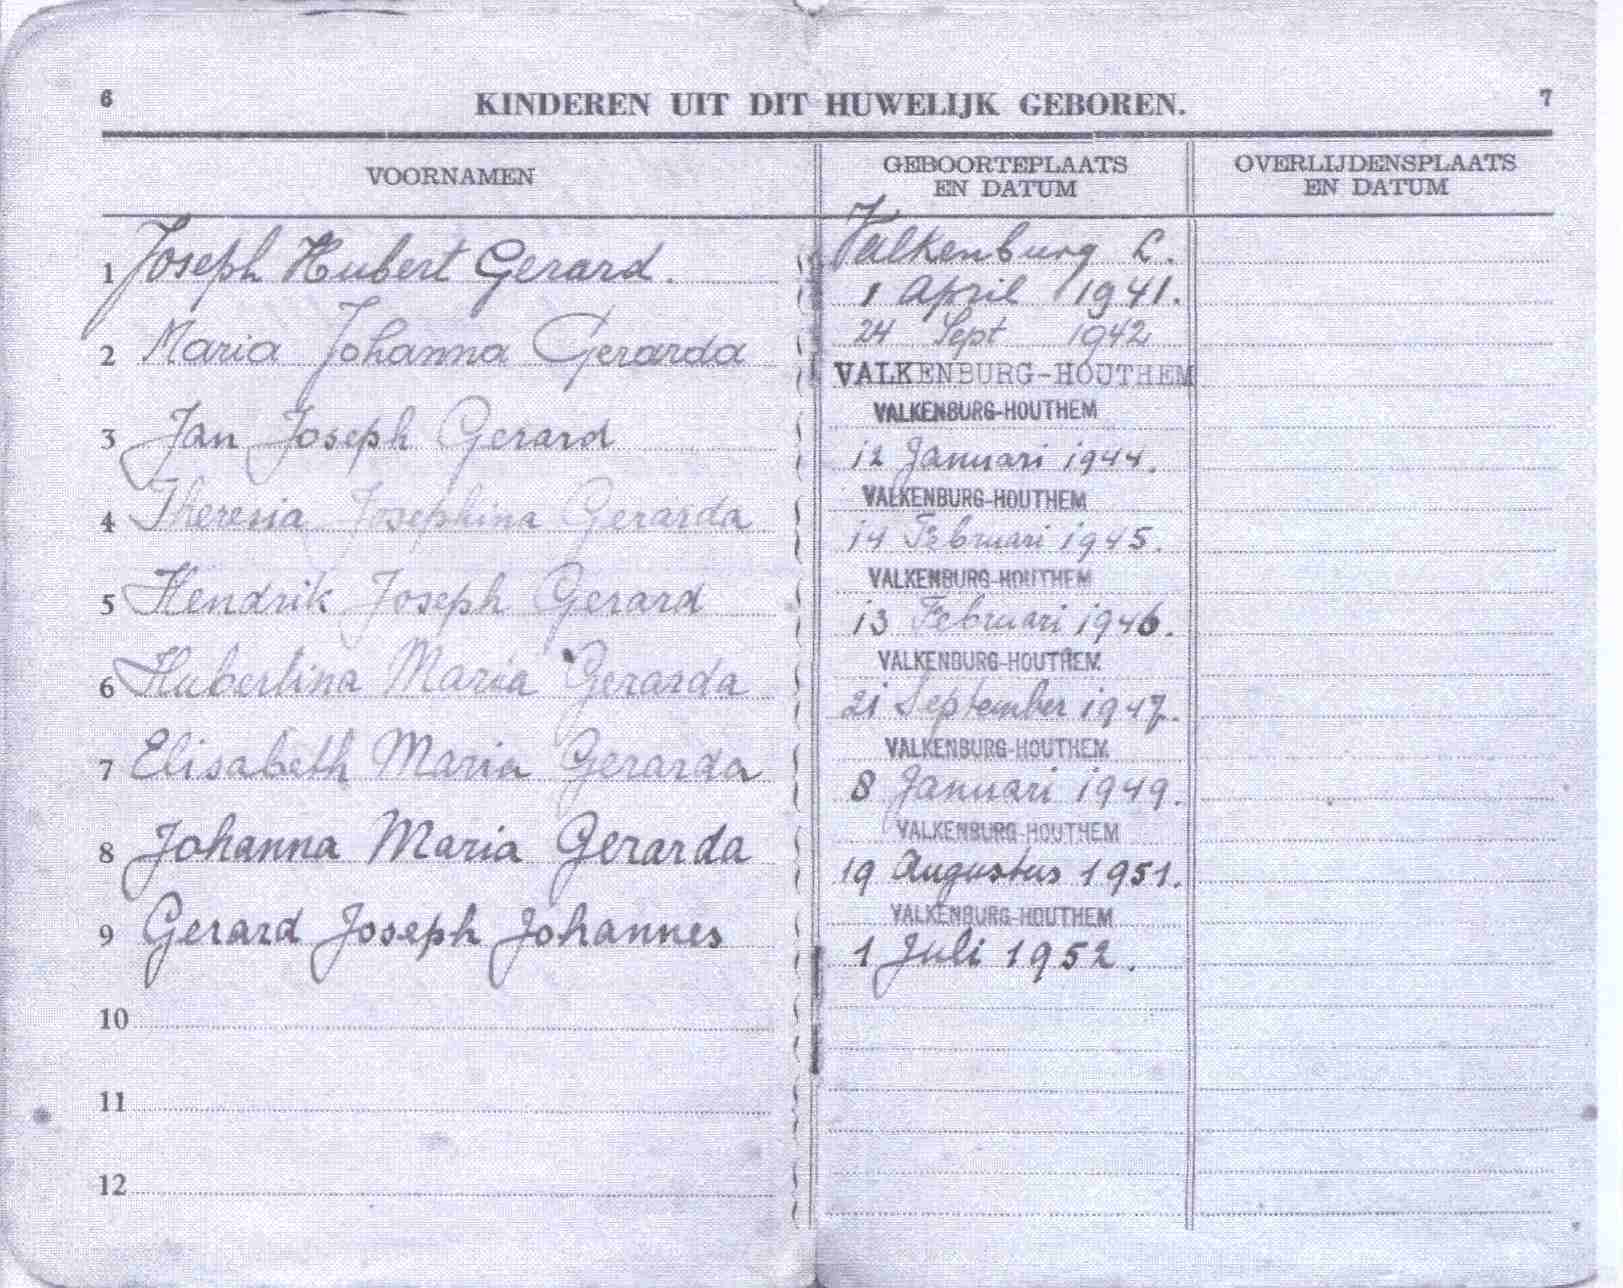 6
KINDEREN UIT DIT HUWELIJK GEBOREN.
7
VOORNAMEN
GEBOORTEPLAATS
EN DATUM
OVERLIJDENSPLAATS
EN DATUM
1 Joseph Hubert Gerard.
Valkenburg L.
1 April 1941.
2 Maria Johanna Gerarda
24 Sept 1942
VALKENBURG-HOUTHEM
3 Jan Joseph Gerard
VALKENBURG-HOUTHEM
12 Januari 1944.
4 Theresia Josephina Gerarda
VALKENBURG-HOUTHEM
14 Februari 1945.
5 Hendrik Joseph Gerard
VALKENBURG-HOUTHEM
13 Februari 1946.
6 Hubertina Maria Gerarda
VALKENBURG-HOUTHEM
21 September 1947.
7 Elisabeth Maria Gerarda
VALKENBURG-HOUTHEM
8 Januari 1949.
8 Johanna Maria Gerarda
VALKENBURG-HOUTHEM
19 Augustus 1951.
9 Gerard Joseph Johannes
VALKENBURG-HOUTHEM
1 Juli 1952.
10
11
12